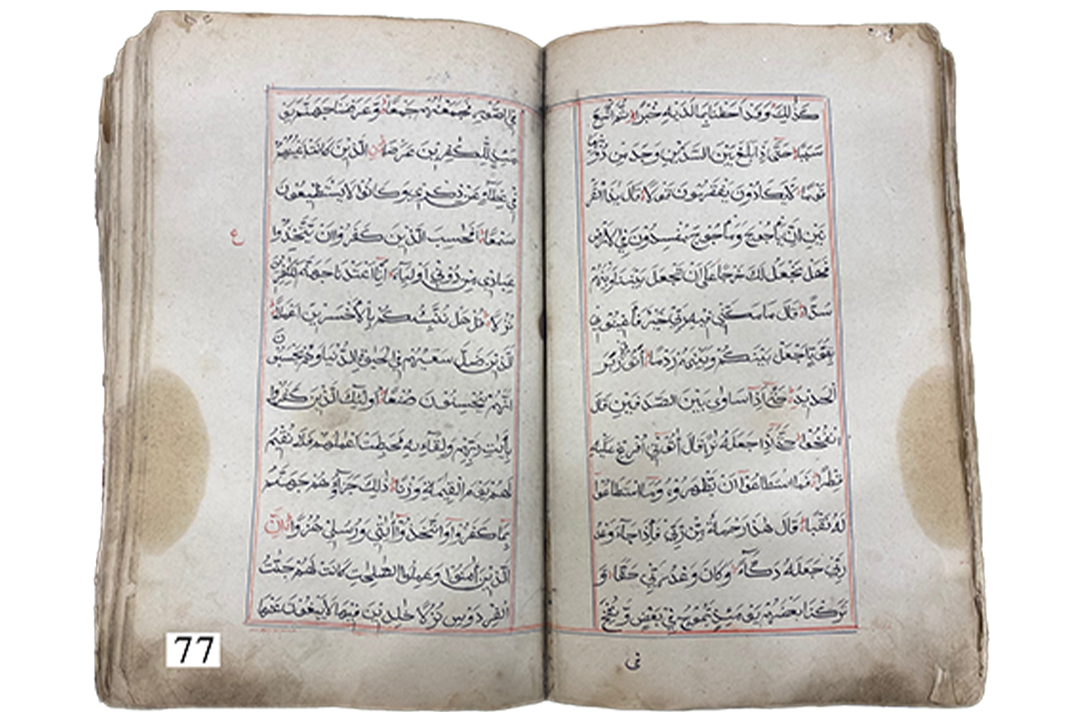 كذلك وقد احطنا بما لديه خبرا ثم اتبع
سببا حتى اذا بلغ بين السدين وجد من دونهما
قوما لا يكادون يفقهون قولا قالوا يذا القر
نين ان ياجوج وماجوج مفسدون في الارض
فهل نجعل لك خرجا على ان تجعل بيننا وبينهم
سدا قال ما مكني فيه ربي خير فاعينوني
بقوة اجعل بينكم وبينهم ردما اتوني زبر
الحديد حتى اذا ساوى بين الصدفين قال
انفخوا حتى اذا جعله نارا قال اتوني افرغ عليه
قطرا فما اسطاعوا ان يظهروه وما استطاعوا
له نقبا قال هذا رحمة من ربي فاذا جاء وعد
ربي جعله دكاء وكان وعد ربي حقا و
تركنا بعضهم يومئذ يموج في بعض ونفخ
في
في الصور فجمعنهم جمعا وعرضنا جهنم يو
مئذ للكفرين عرضا ن الذين كانت اعينهم
في غطاء عن ذكري وكانوا لا يستطيعون
سمعا افحسب الذين كفروا ان يتخذوا
ع
عبادي من دوني اولياء انا اعتدنا جهنم للكفرين
نزلا قل هل ننبئكم بالاخسرين اعملا
الذين ضل سعيهم في الحيوة الدنيا وهم يحسبون
انهم يحسنون صنعا اولئك الذين كفروا
بايت ربهم ولقائه فحبطت اعملهم فلا نقيم
لهم يوم القيمة وزنا ذلك جزاؤهم جهنم
بما كفروا واتخذوا ايتي ورسلي هزوا ان
الذين امنوا وعملوا الصلحت كانت لهم جنت
الفردوس نزلا خلدين فيها لا يبغون عنها
77